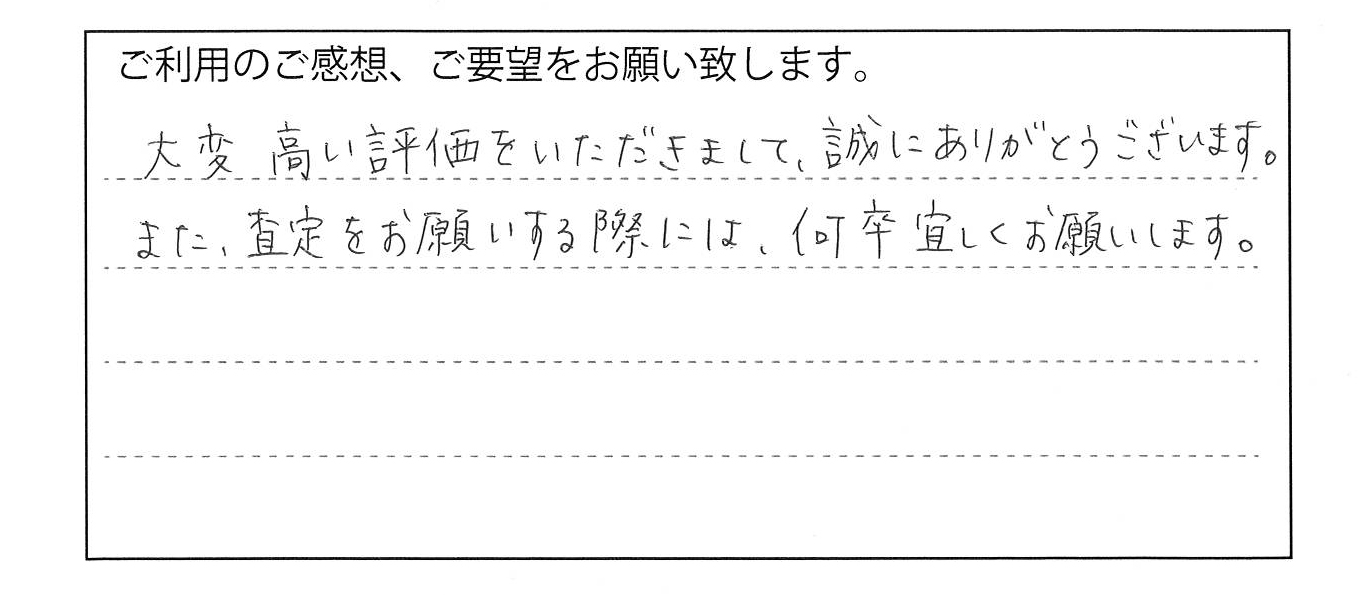 ご利用のご感想、ご要望をお願い致します。
大変高い評価をいただきまして、誠にありがとうございます。
また、査定をお願いする際には、何卒宜しくお願いします。